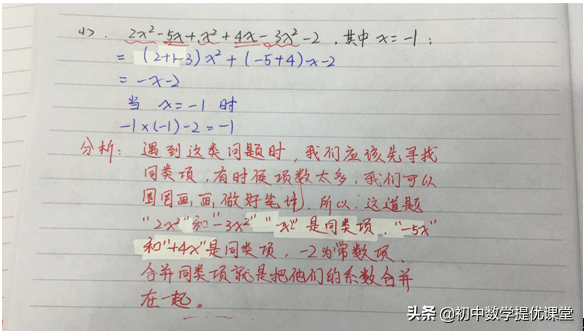 (1). 2x²-5x+x²+4x-3x²-2,其中x=-1;
=(2+1-3)x²+(-5+4)x-2
=-x-2
当 x=-1 时
-1×(-1)-2=-1
分析:遇到这类问题时,我们应该先寻找
同类项,有时候项数太多,我们可以
圈圈画画,做好笔记。所以:这道题
"2x²"和"-3x²" "x²"是同类项,"-5x"
和"+4x"是同类项,-2为常数项、
合并同类项就是把他们的系数合并
在一起。
头条@初中数学提优课堂